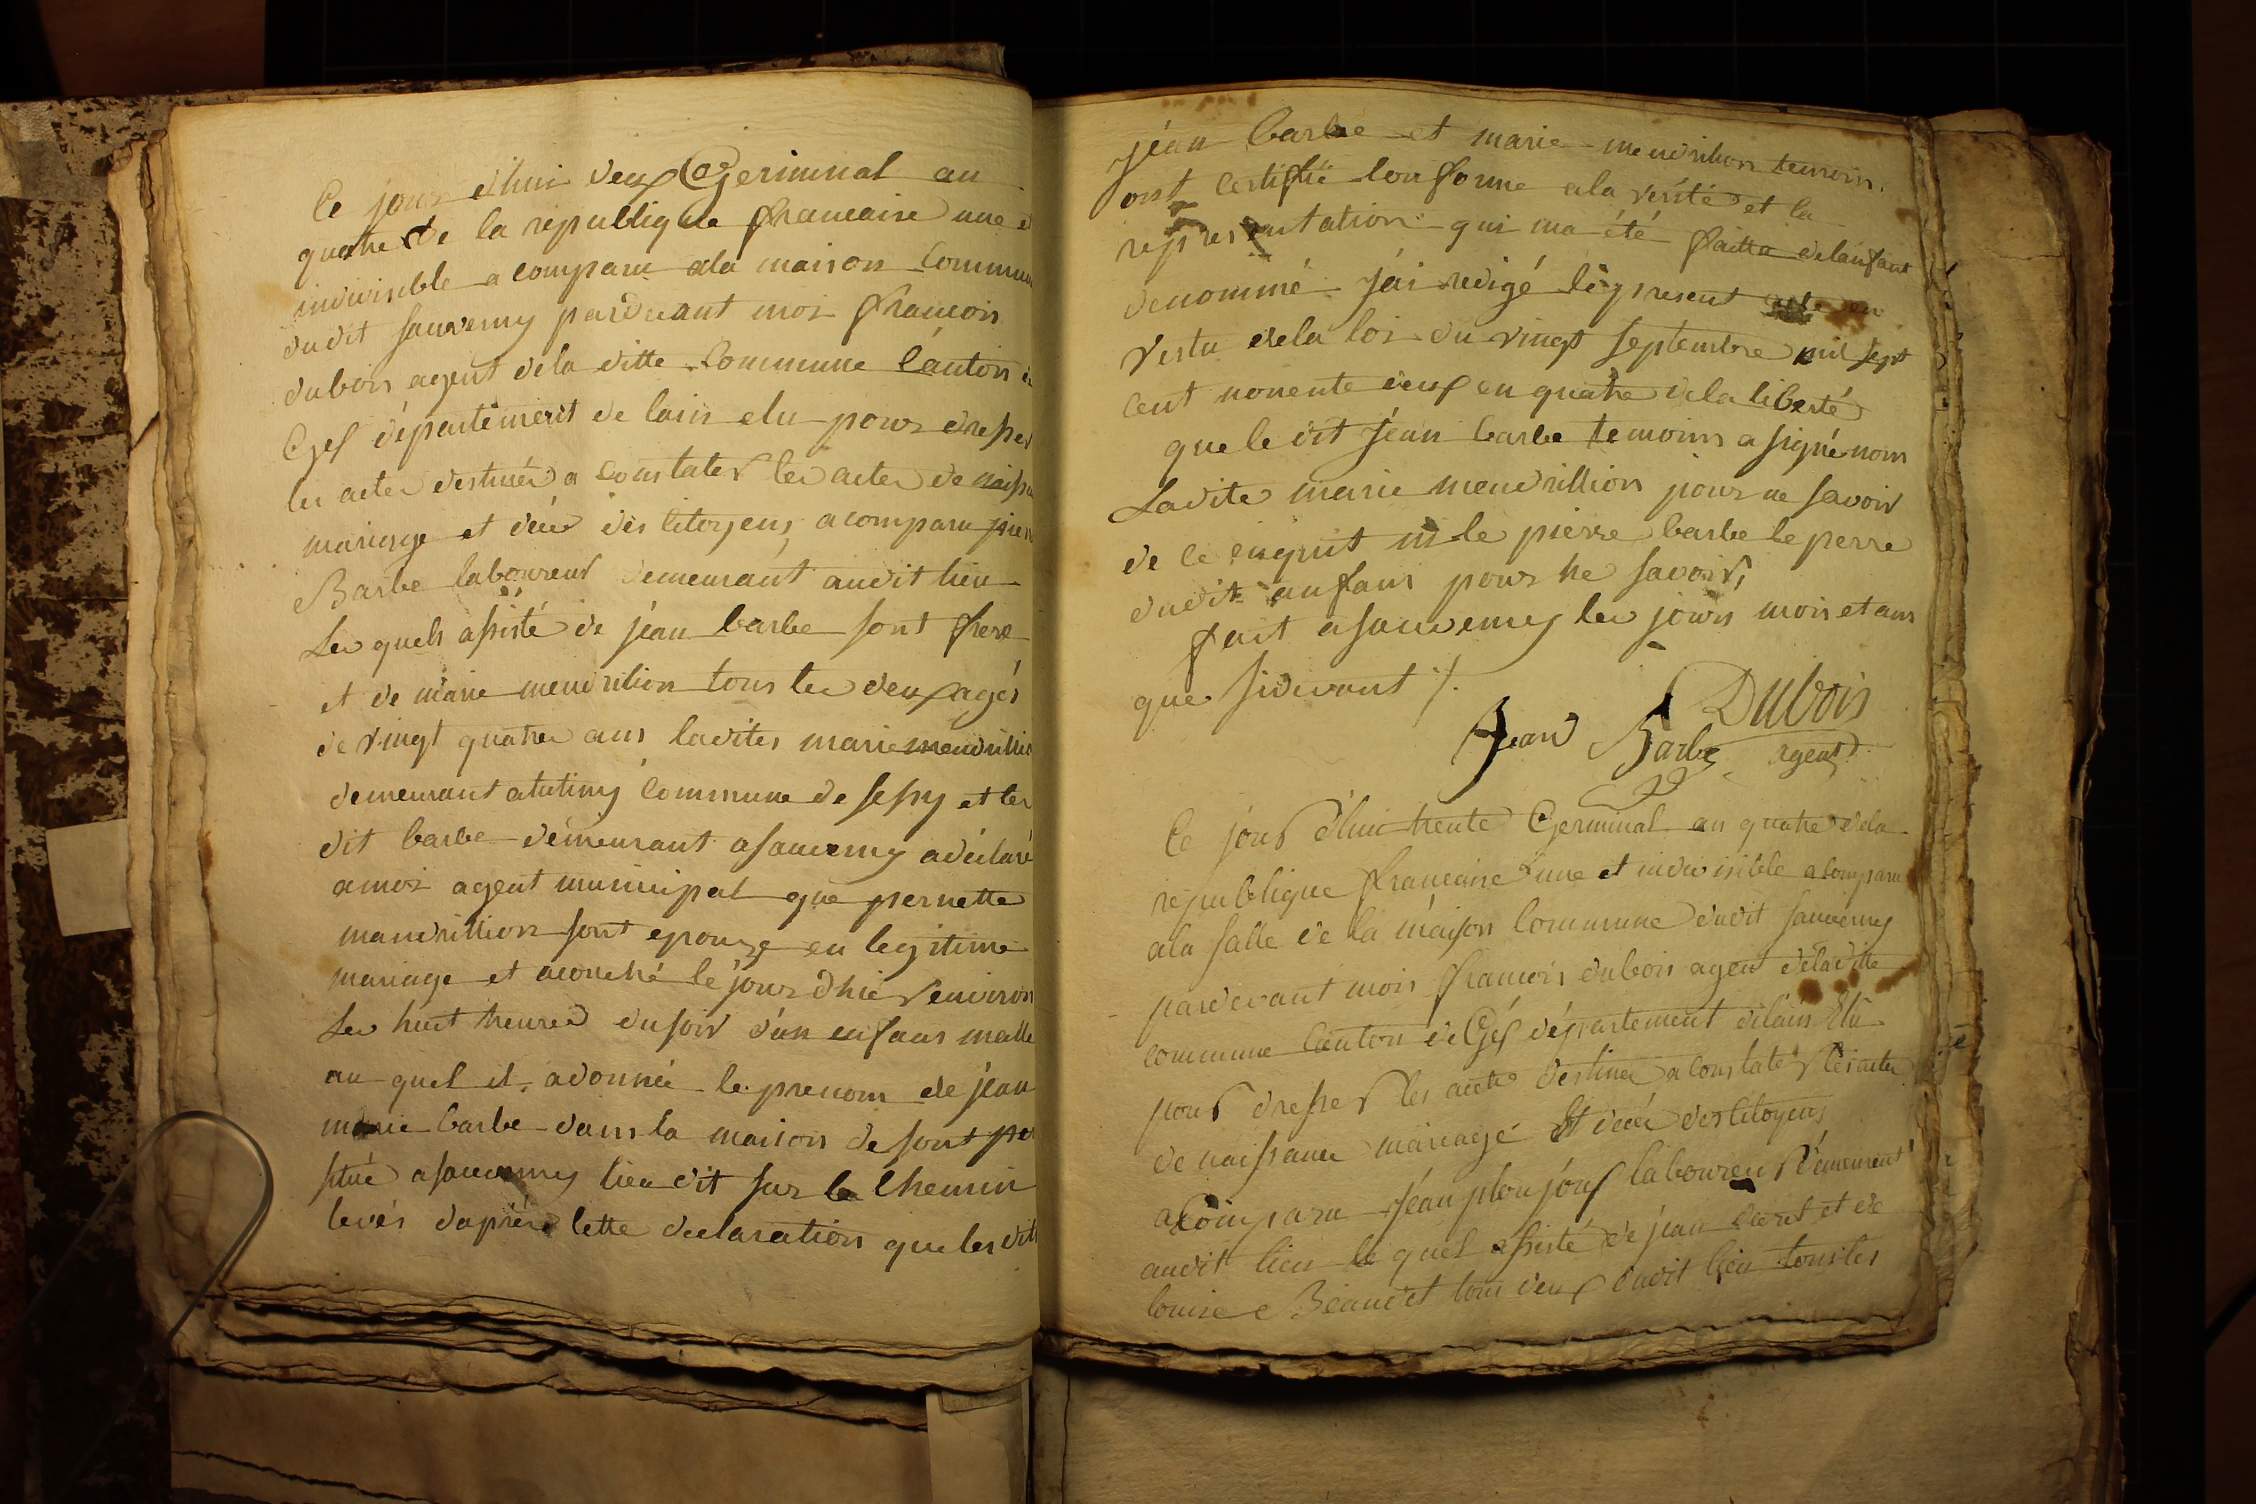 Ce jour d'hui deux Germinal an
quatre de la republique francaire une et
indivisible a comparu ala maison Commune
dudit sauverny pardevant moi francois
dubois agent dela ditte Commune Canton de
Gex département de lain elu pour dresser
les actes destinés a constater les actes de naissa
mariage et décé des Citoyens, a comparu pierre
Barbe laboureur demeurant audit lieu
Les quels assisté de jéan barbe sont frere
et de marie mendrilion tous les deux agés
de vingt quatre ans ladites marie mendrillion
demeurant a tutiny commune de sessy et les
dit barbe demeurant a sauverny a déclaré
a moi agent municipal que pernette
mandrillion sont epouze en legitime
mariage et acouché le jour d'hier environ
Les huit heures du soir d'un enfans malle
au quel il a donnée le prenom de jéan
marie barbe dans la maison de sont per
situé a sauverny lieu dit sur le Chemin
levés daprérs cette declaration que les dit
jéan barbe et marie mendrilion temoin
ont certiffié conforme ala vérité et la
representation qui ma été faitte de lanfant
denommé jéai redigé le present acte en
vertu dela loi du vingt septembre mil sept
cent nonente deux en quatre dela liberté
que le dit jéan barbe temoins a signé nom
Ladite marie mendrillion pour ne savoir
de ce enquit ni le pierre barbe le perre
dudit anfans pour ne savoir,
fait a sauverny les jours mois et ans
que sidevant ./.
Jean Barbe Dubois
agent
Ce jour d'hui trente Germinal an quatre dela
republique francaise une et indivisible a comparu
ala salle de la maison Commune dudit sauverny
pardevant mois francois dubois agent dela ditte
commune Canton de Gex département delain Elu
pour dresser les acte destinéa a constater les actes
de naissance mariage Et décée des Citoyens
a Comparu Jéan plonjoux laboureur démeurent
audit lieu le quel assisté de jéan et de
louise Béaudet tous deux dudit lieu tous les